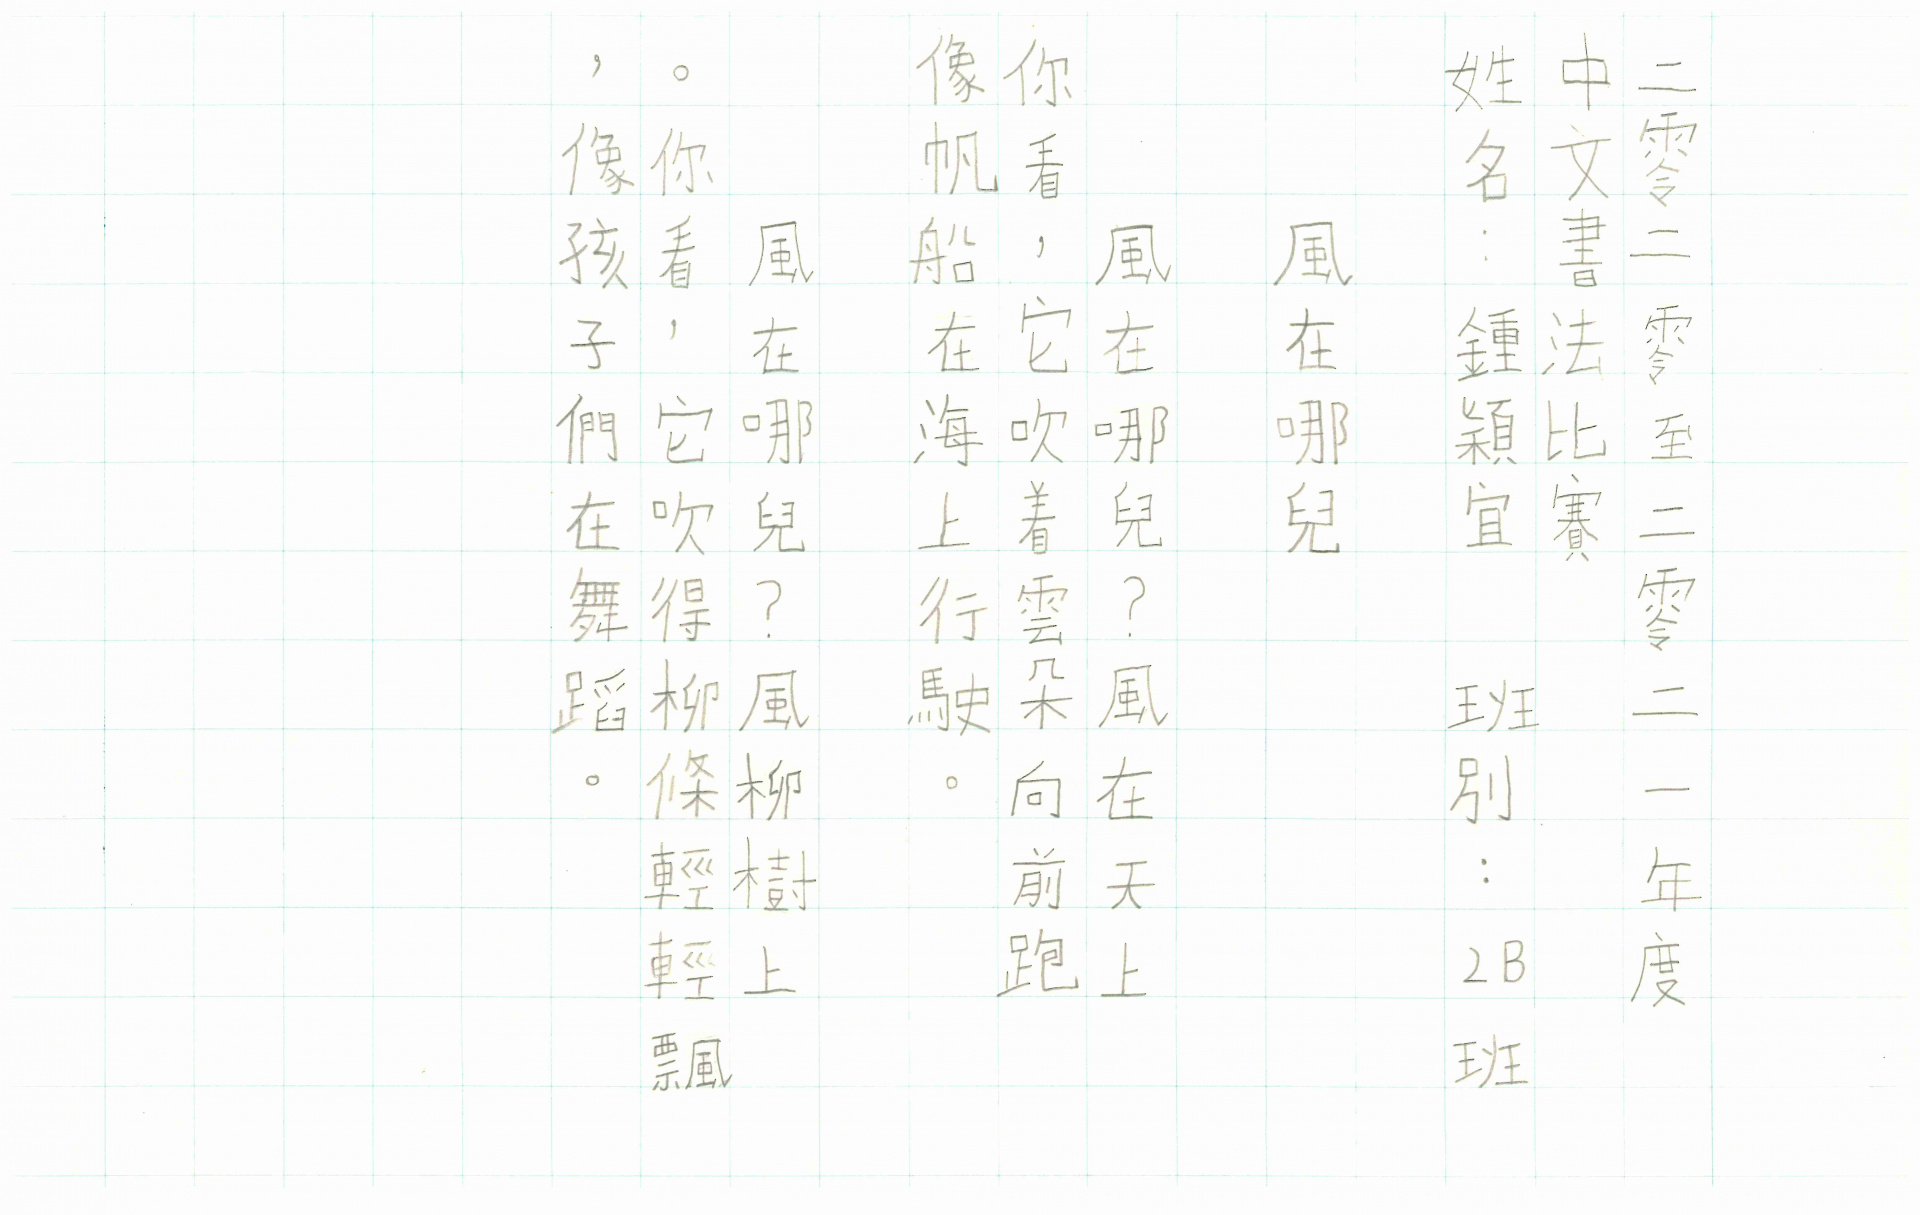 二零二零至二零二一年度
中文書法比賽
姓名：鍾穎宜 班別：2B班
風在哪兒
風在哪兒？風在天上
你看，它吹着雲朵向前跑
像帆船在海上行駛。
風在哪兒？風柳樹上
。你看，它吹得柳條輕輕飄
，像孩子們在舞蹈。